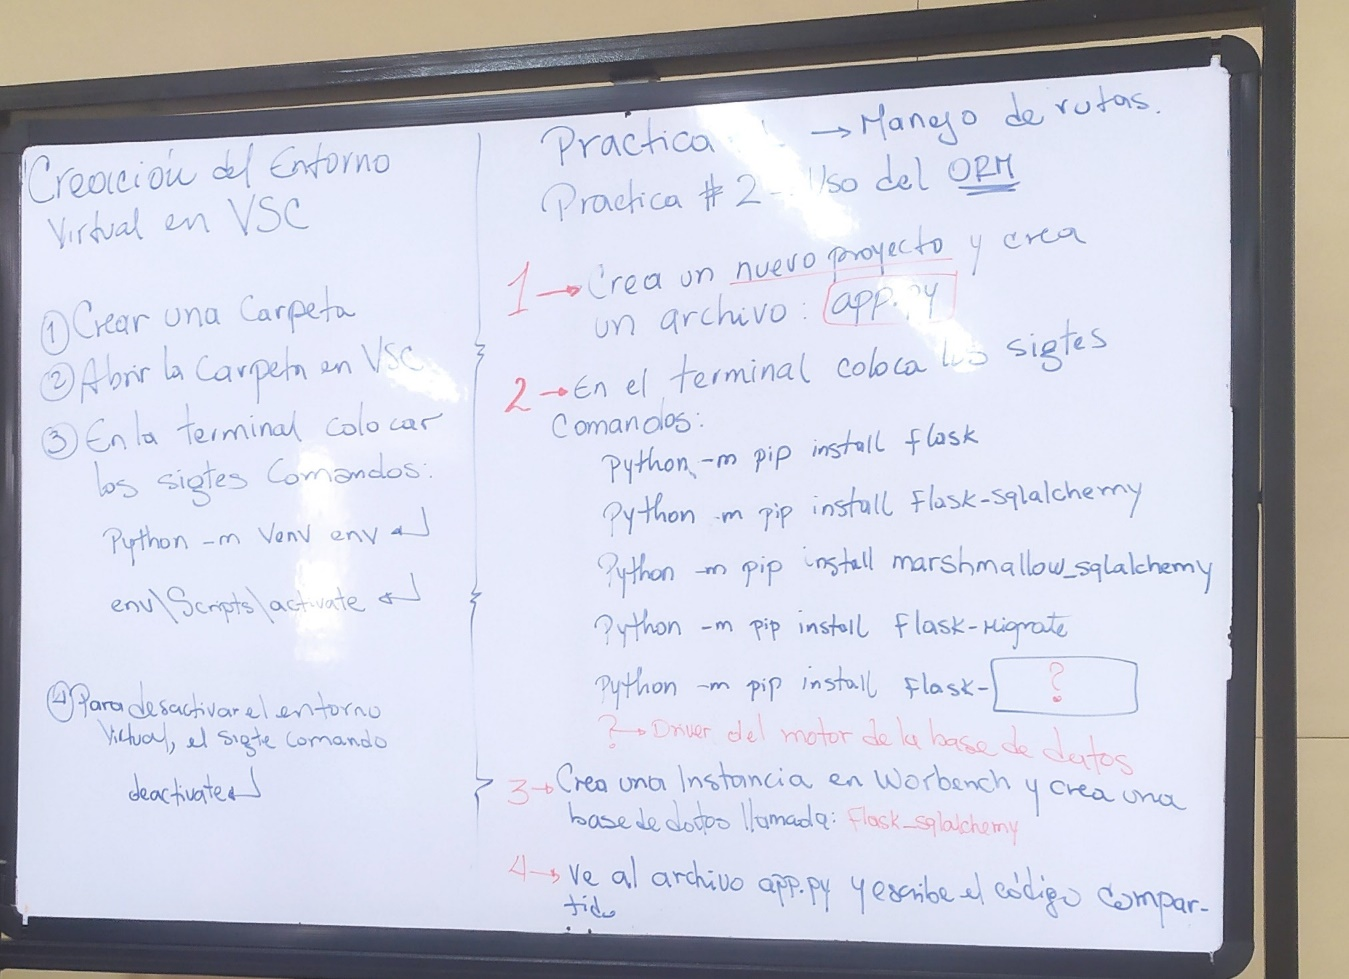 Creación del Entorno
Virtual en VSC
① Crear una Carpeta
② Abrir la Carpeta en VSC
③ En la terminal colocar
los sigtes Comandos:
Python -m Venv env ↵
env\Scripts\activate ↵
④ Para desactivar el entorno
Virtual, el sigte comando
deactivate ↵
Practica → Manejo de rutas.
Practica # 2 - Uso del ORM
1 → Crea un nuevo proyecto y crea
un archivo: app.py
2 → En el terminal coloca los sigtes
Comandos:
Python -m pip install flask
Python -m pip install Flask-sqlalchemy
Python -m pip install marshmallow_sqlalchemy
Python -m pip install Flask-Migrate
Python -m pip install Flask- ?
? → Driver del motor de la base de datos
3 → Crea una Instancia en Worbench y crea una
base de datos llamada: flask_sqlalchemy
4 → Ve al archivo app.py y escribe el código compar-
tido